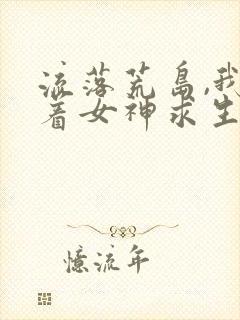 流落荒岛,我
着女神求生
憶流年